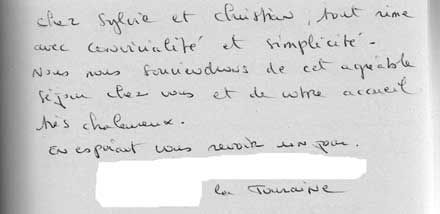 chez Sylvie et Christian, tout rime
avec convivialité et simplicité.
Nous nous souviendrons de cet agréable
séjour chez vous et de votre accueil
très chaleureux.
En espérant vous revoir un jour.
la Touraine